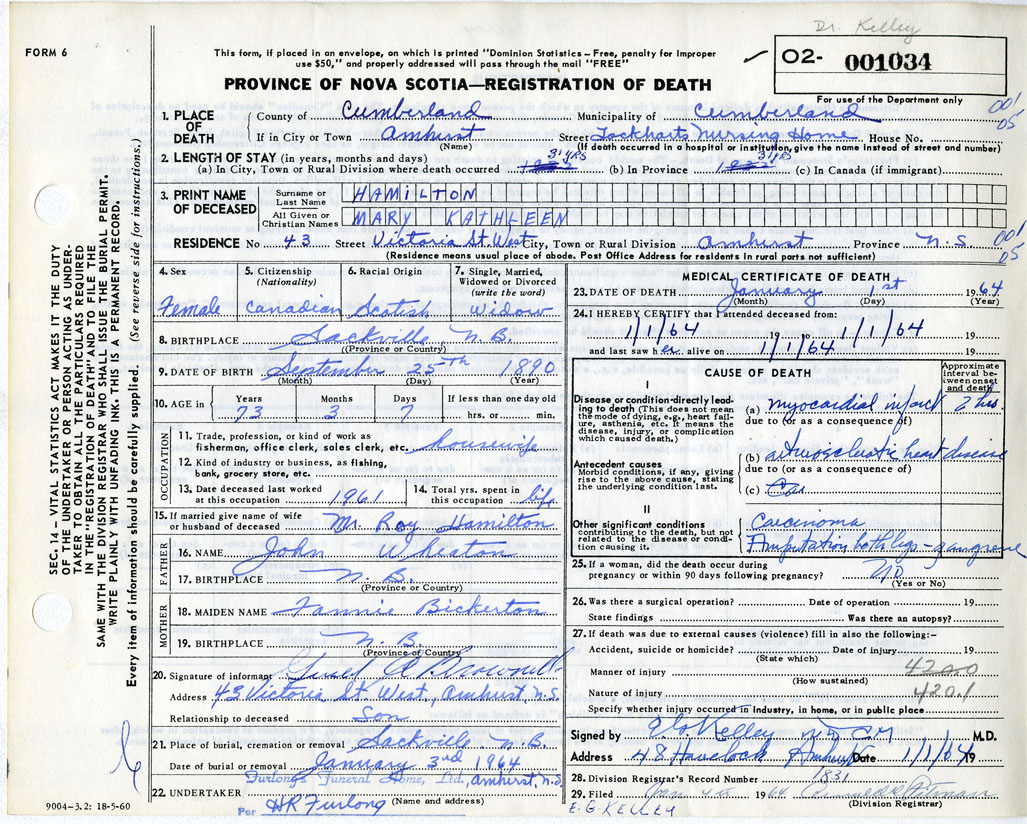 Dr. Kelley
FORM 6
This form, if placed in an envelope, on which is printed "Dominion Statistics – Free, penalty for improper
use $50," and properly addressed will pass through the mail "FREE"
O2- 001034
PROVINCE OF NOVA SCOTIA—REGISTRATION OF DEATH
For use of the Department only
001
05
1. PLACE OF DEATH
County of Cumberland Municipality of Cumberland
If in City or Town Amherst Street Lockharts Nursing Home House No.
(Name) (If death occurred in a hospital or institution, give the name instead of street and number)
2. LENGTH OF STAY (in years, months and days)
(a) In City, Town or Rural Division where death occurred 3½ yrs (b) In Province 3½ yrs (c) In Canada (if immigrant)
3. PRINT NAME OF DECEASED
Surname or Last Name HAMILTON
All Given or Christian Names MARY KATHLEEN
RESIDENCE No 43 Street Victoria St. West City, Town or Rural Division Amherst Province N.S.
001
05
(Residence means usual place of abode. Post Office Address for residents in rural parts not sufficient)
4. Sex
Female
5. Citizenship
(Nationality)
Canadian
6. Racial Origin
Scotish
7. Single, Married,
Widowed or Divorced
(write the word)
Widow
8. BIRTHPLACE Sackville N.B.
(Province or Country)
9. DATE OF BIRTH September 25th 1890
(Month) (Day) (Year)
10. AGE in
Years Months Days If less than one day old
73 3 7 hrs. or min.
OCCUPATION
11. Trade, profession, or kind of work as
fisherman, office clerk, sales clerk, etc. housewife
12. Kind of industry or business, as fishing,
bank, grocery store, etc.
13. Date deceased last worked
at this occupation 1961
14. Total yrs. spent in
this occupation life
15. If married give name of wife
or husband of deceased Mr. Roy Hamilton
FATHER
16. NAME John Wheaton
17. BIRTHPLACE N.B.
(Province or Country)
MOTHER
18. MAIDEN NAME Fannie Bickerton
19. BIRTHPLACE N.B.
(Province or Country)
20. Signature of informant
Address 43 Victoria St. West, Amherst, N.S.
Relationship to deceased Son
21. Place of burial, cremation or removal Sackville N.B.
Date of burial or removal January 3rd 1964
Furlong's Funeral Home, Ltd., Amherst, N.S.
22. UNDERTAKER
(Name and address)
For HR Furlong
9004–3.2: 18-5-60
MEDICAL CERTIFICATE OF DEATH
23. DATE OF DEATH January 1st 1964
(Month) (Day) (Year)
24. I HEREBY CERTIFY that I attended deceased from:
1/1/64 19 1/1/64 19
and last saw her alive on 1/1/64 19
CAUSE OF DEATH
Approximate
interval be-
tween onset
and death
I
Disease or condition directly lead-
ing to death (This does not mean
the mode of dying, e.g., heart fail-
ure, asthenia, etc. It means the
disease, injury, or complication
which caused death.)
(a) myocardial infarct 2 hrs.
due to (or as a consequence of)
Antecedent causes
Morbid conditions, if any, giving
rise to the above cause, stating
the underlying condition last.
(b) arteriosclerotic heart disease
due to (or as a consequence of)
(c) Car
II
Other significant conditions
contributing to the death, but not
related to the disease or condi-
tion causing it.
Carcinoma
Amputation both legs – gangrene
25. If a woman, did the death occur during
pregnancy or within 90 days following pregnancy? No
(Yes or No)
26. Was there a surgical operation? Date of operation 19
State findings Was there an autopsy?
27. If death was due to external causes (violence) fill in also the following:–
Accident, suicide or homicide? Date of injury 19
(State which)
Manner of injury 420.0
(How sustained)
Nature of injury 420.1
Specify whether injury occurred in industry, in home, or in public place
Signed by Kelley M.D. C.M. M.D.
Address 48 Havelock Amherst Date 1/1/64 19
28. Division Registrar's Record Number 1831
29. Filed Jan 4th 1964
(Division Registrar)
E. G. KELLEY
SEC. 14 – VITAL STATISTICS ACT MAKES IT THE DUTY
OF THE UNDERTAKER OR PERSON ACTING AS UNDER-
TAKER TO OBTAIN ALL THE PARTICULARS REQUIRED
IN THE "REGISTRATION OF DEATH" AND TO FILE THE
SAME WITH THE DIVISION REGISTRAR WHO SHALL ISSUE THE BURIAL PERMIT.
WRITE PLAINLY WITH UNFADING INK. THIS IS A PERMANENT RECORD.
Every item of information should be carefully supplied. (See reverse side for instructions.)